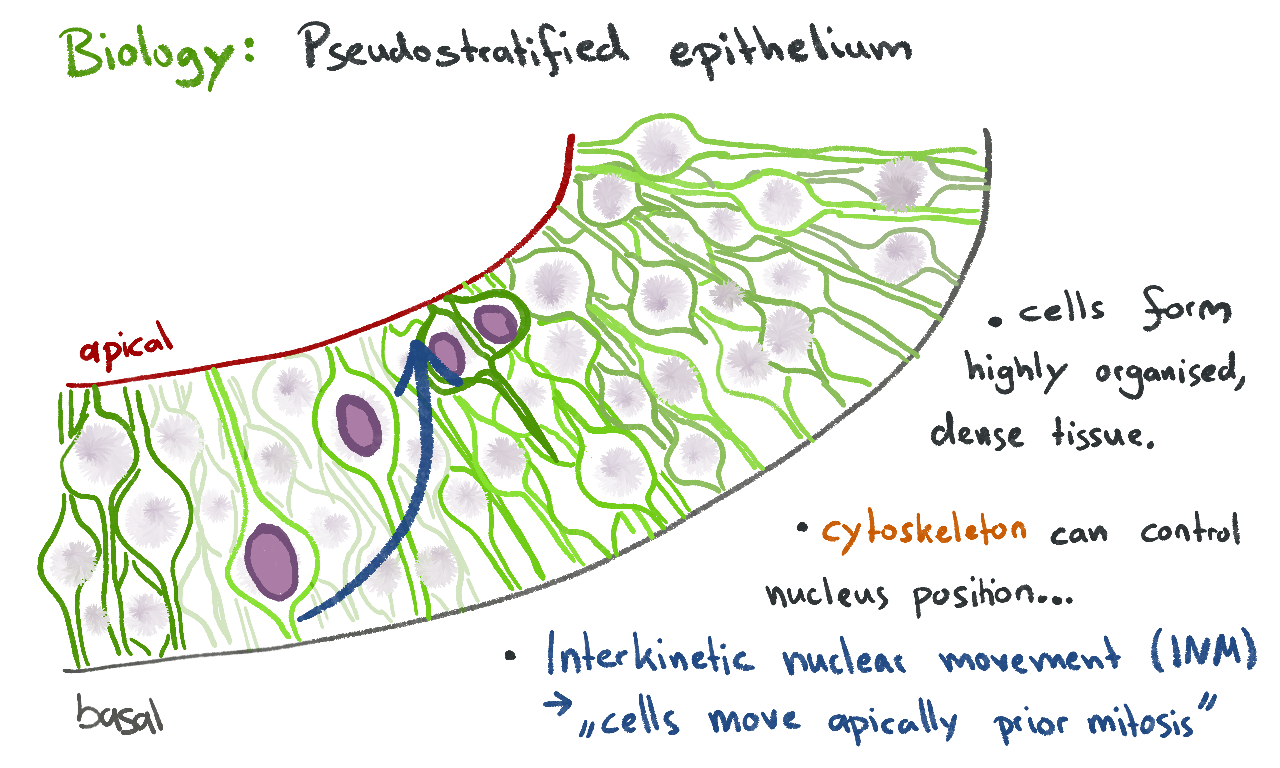 Biology: Pseudostratified epithelium
apical
• cells form
highly organised,
dense tissue.
• cytoskeleton can control
nucleus position...
• Interkinetic nuclear movement (INM)
→ „cells move apically prior mitosis”
basal